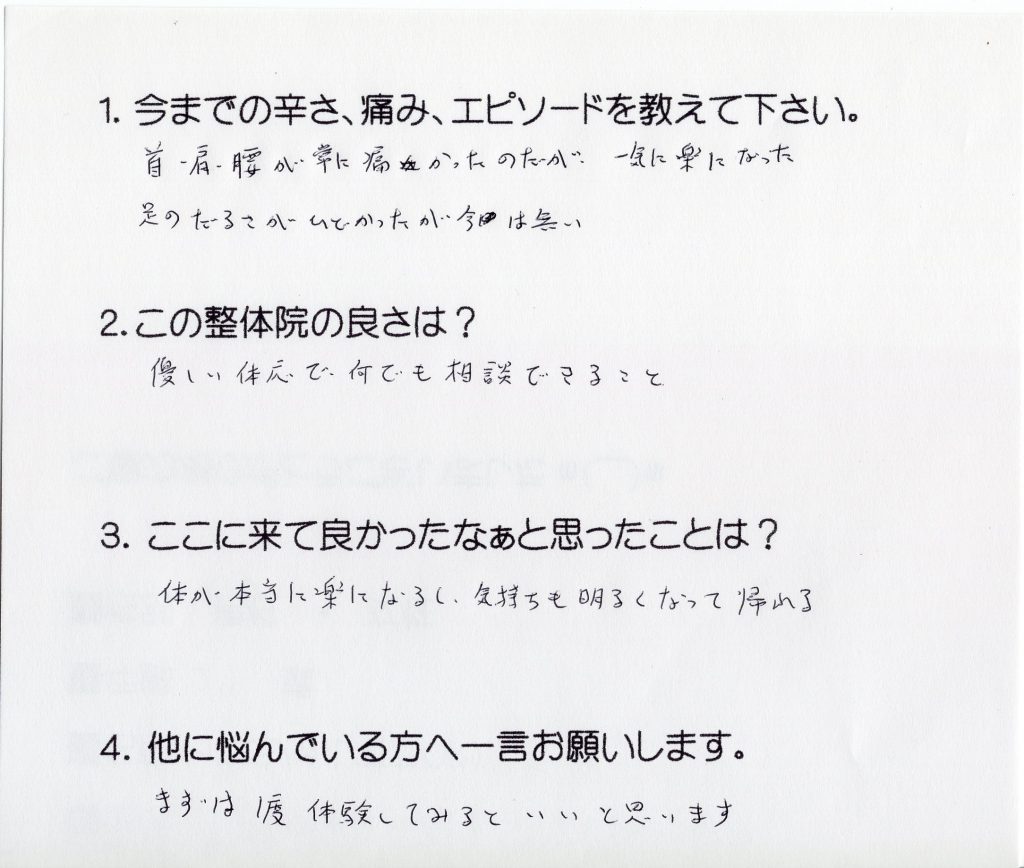 1. 今までの辛さ、痛み、エピソードを教えて下さい。
首・肩・腰が常に痛かったのだが、一気に楽になった
足のだるさがひどかったが今は無い
2. この整体院の良さは？
優しい体応で、何でも相談できること
3. ここに来て良かったなぁと思ったことは？
体が本当に楽になるし、気持ちも明るくなって帰れる
4. 他に悩んでいる方へ一言お願いします。
まずは1度体験してみるといいと思います